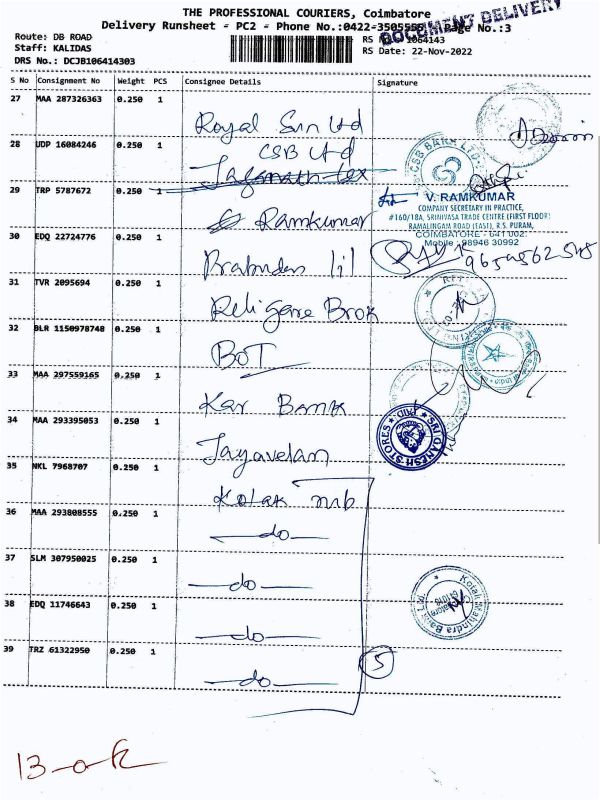 THE PROFESSIONAL COURIERS, Coimbatore
Delivery Runsheet - PC2 - Phone No.:0422-3505555 Page No.:3
DOCUMENT DELIVERY
Route: DB ROAD
RS No.: 1064143
Staff: KALIDAS
RS Date: 22-Nov-2022
DRS No.: DCJB106414303
S No Consignment No Weight PCS Consignee Details Signature
27 MAA 287326363 0.250 1
Royal Sun Ltd
28 UDP 16084246 0.250 1
CSB Ltd
CSB BANK LTD
Jaganath tex
29 TRP 5787672 0.250 1
Ramkumar
V. RAMKUMAR
COMPANY SECRETARY IN PRACTICE,
#160/18A, SRINIVASA TRADE CENTRE (FIRST FLOOR)
RAMALINGAM ROAD (EAST), R.S. PURAM,
COIMBATORE - 641 002.
Mobile: 98946 30992
30 EDQ 22724776 0.250 1
31 TVR 2095694 0.250 1
Religare Brok
32 BLR 1150978748 0.250 1
BOT
33 MAA 297559165 0.250 1
Kar Bank
34 MAA 293395053 0.250 1
Jayavelan
SRI GANESH STORES
35 NKL 7968707 0.250 1
Kotak mb
36 MAA 293808555 0.250 1
—do—
37 SLM 307950025 0.250 1
—do—
Kotak Mahindra Bank Ltd
38 EDQ 11746643 0.250 1
—do—
39 TRZ 61322950 0.250 1
—do—
5
13-ok